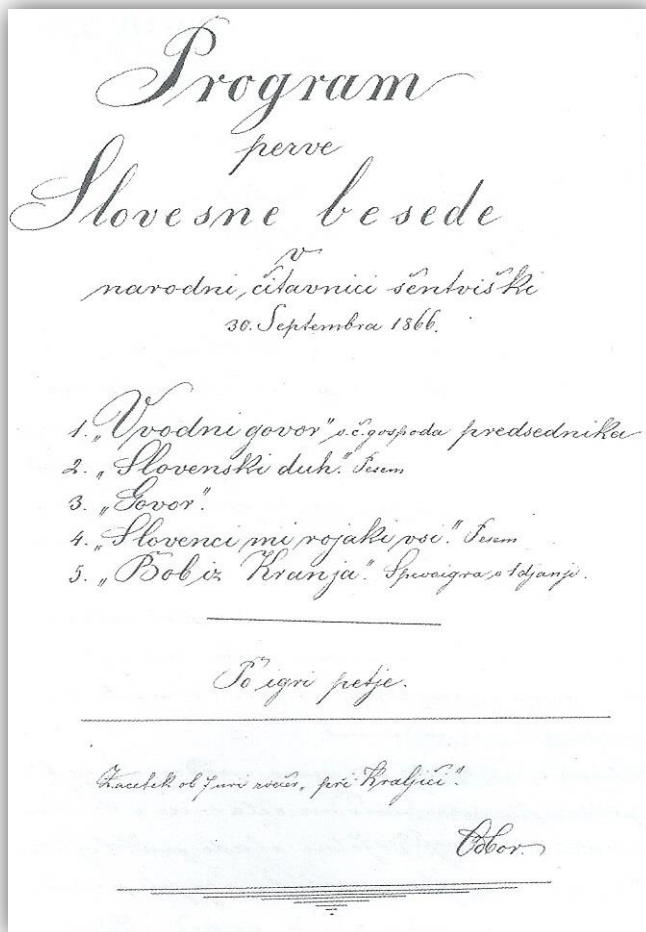 Program
perve
Slovesne besede
v
narodni čitavnici šentviški
30. Septembra 1866.
1. „Vvodni govor" s.č. gospoda predsednika
2. „Slovenski duh." Pesem
3. „Govor".
4. „Slovenci mi rojaki vsi." Pesem
5. „Bob iz Kranja." Spevoigra v 1 djanji.
Po igri petje.
Začetek ob 7 uri zvečer „pri Kraljiči".
Odbor.